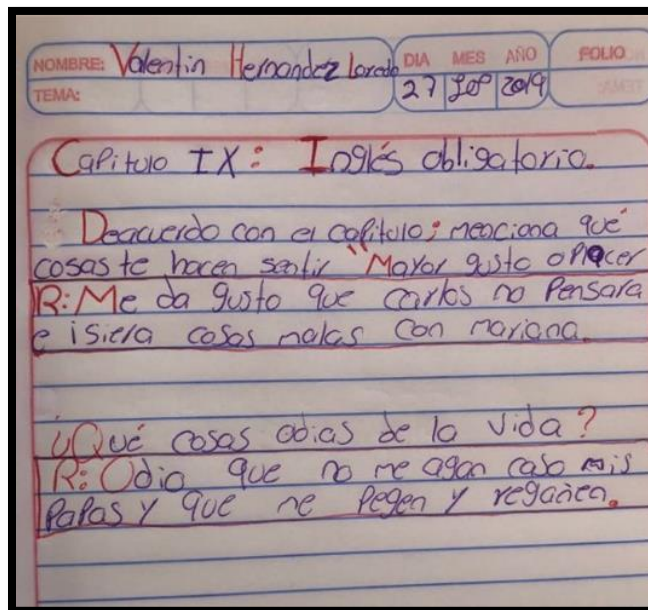 NOMBRE: Valentin Hernandez Loredo DIA MES AÑO FOLIO
TEMA: 27 Sep 2019
Capitulo IX: Inglés obligatorio.
Deacuerdo con el capitulo; menciona qué
cosas te hacen sentir "Mayor gusto o Placer
R: Me da gusto que carlos no Pensara
e isiera cosas malas con mariana.
¿Qué cosas odias de la vida?
R: Odio que no me agan caso mis
PaPas y que me Pegen y regañen.